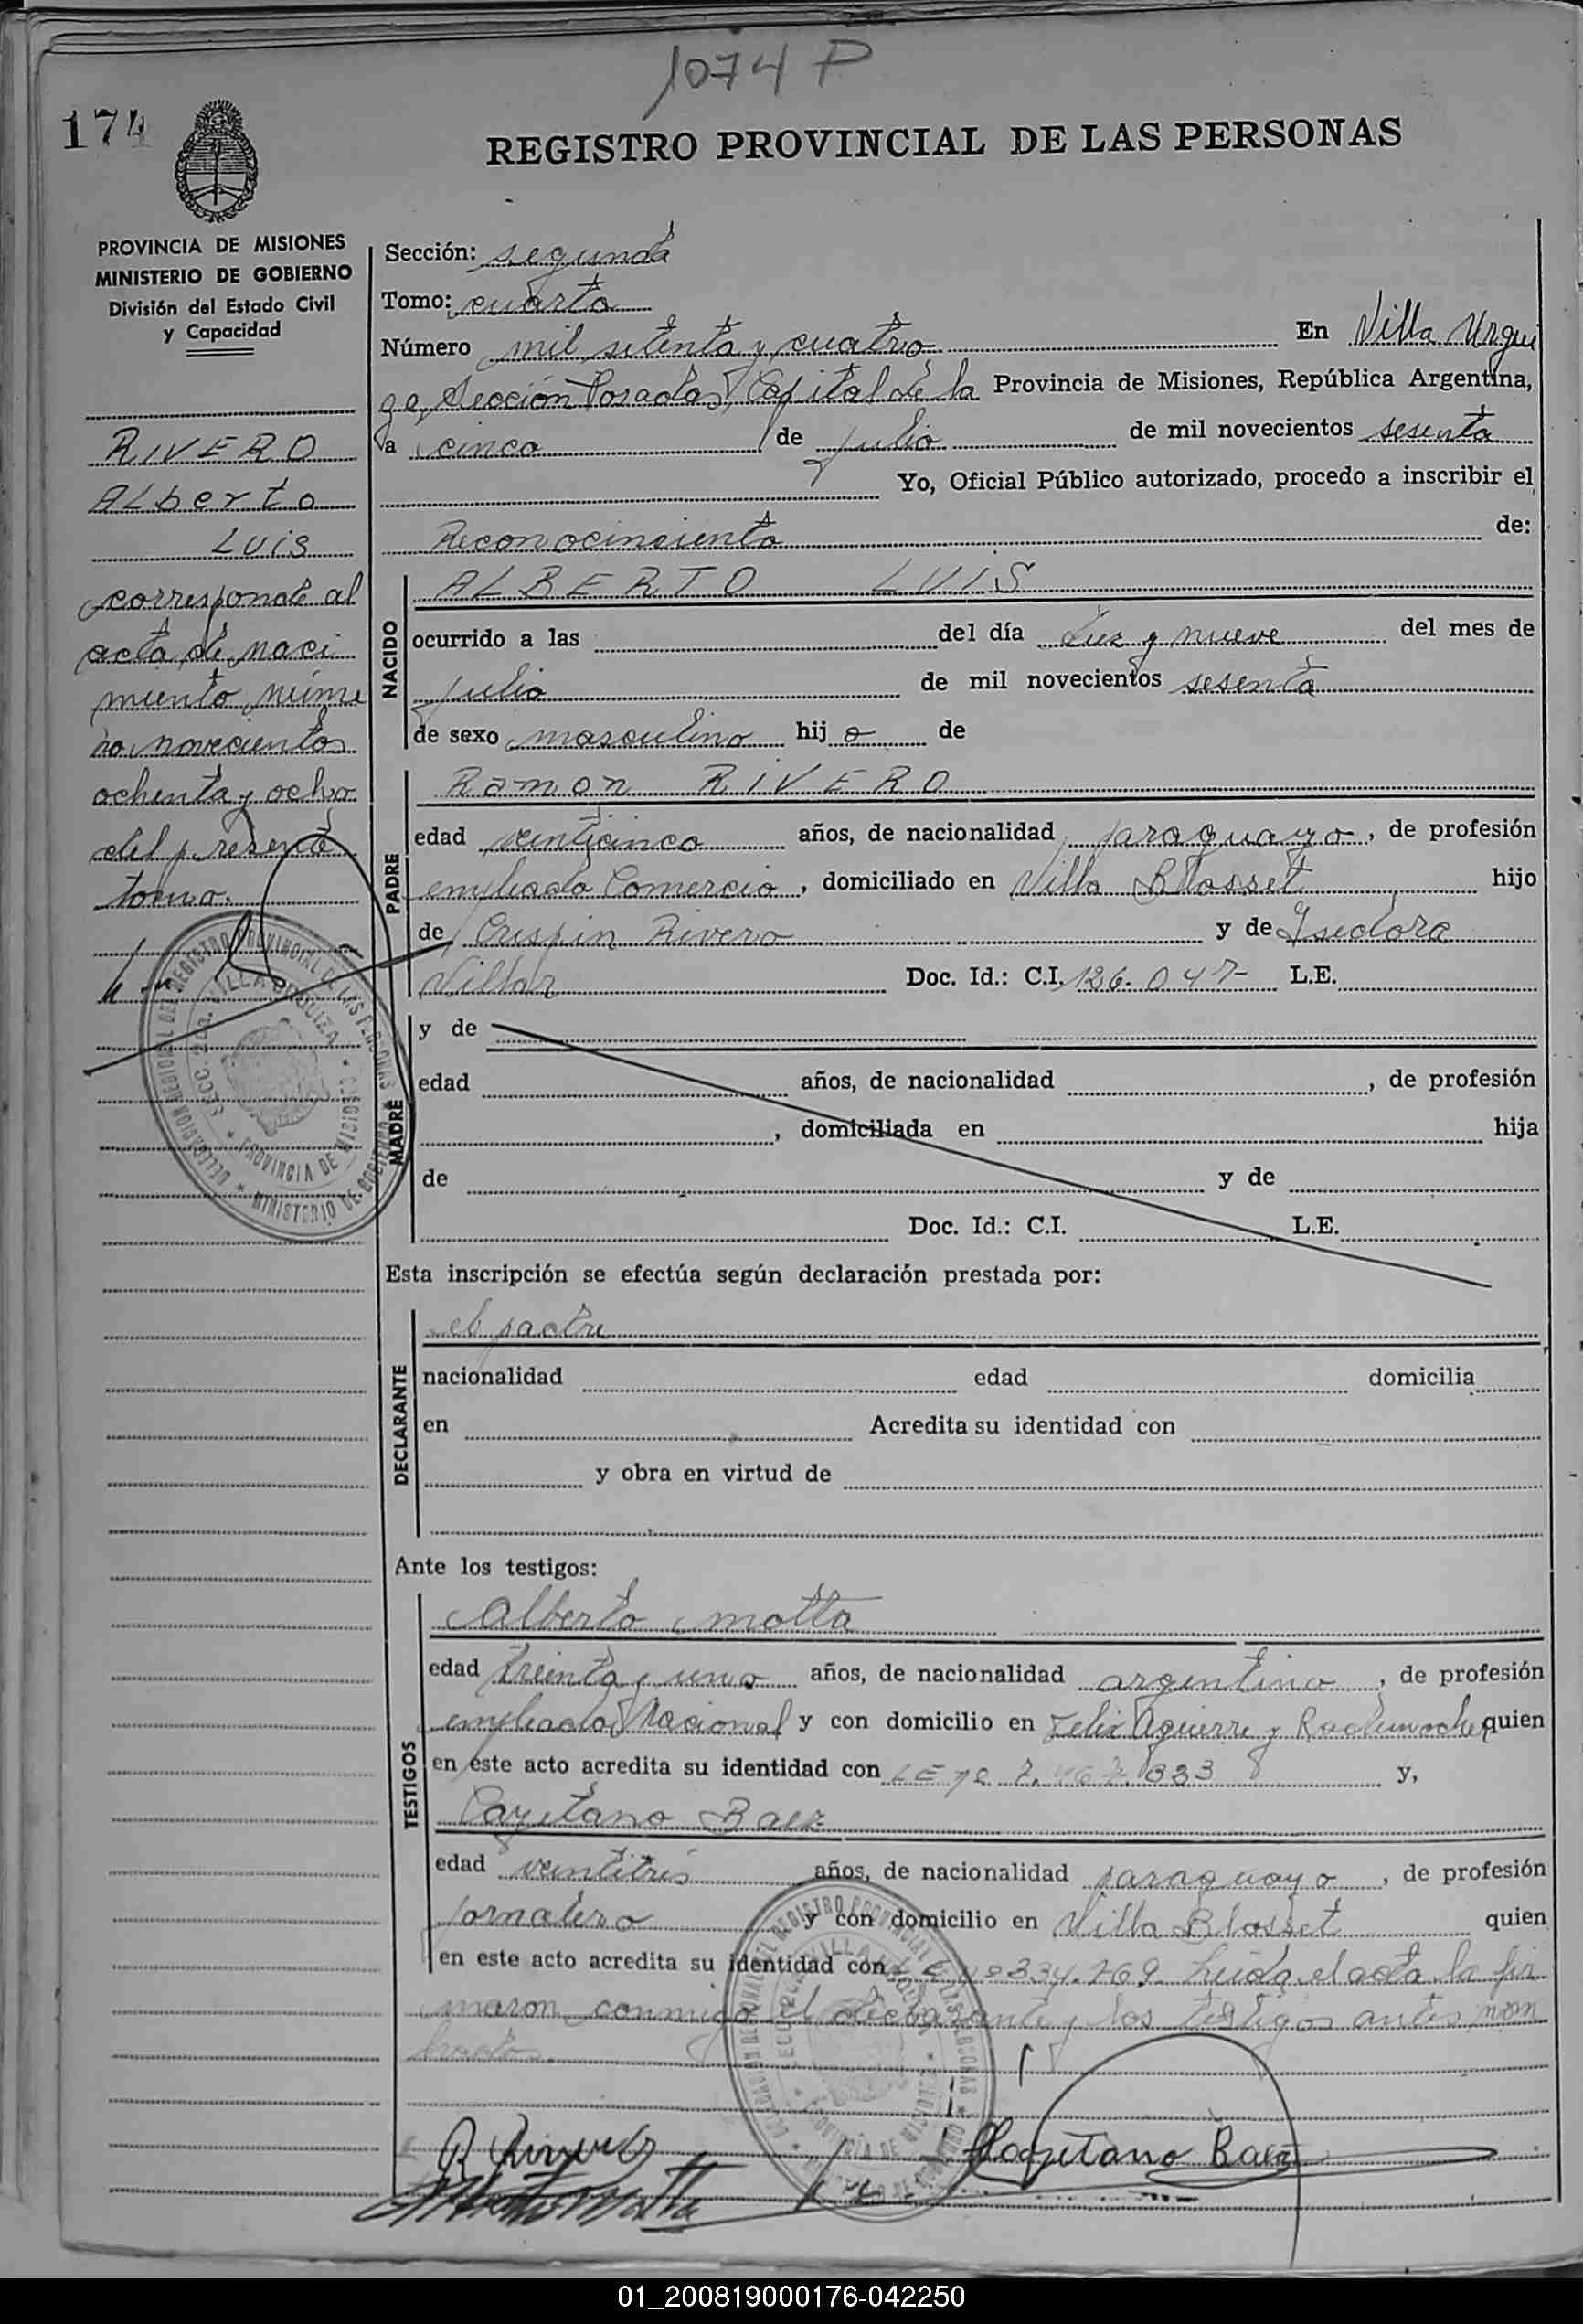 1074 P
174
REGISTRO PROVINCIAL DE LAS PERSONAS
PROVINCIA DE MISIONES
MINISTERIO DE GOBIERNO
División del Estado Civil
y Capacidad
RIVERO
ALberto
Luis
corresponde al
acta de naci
miento núme
ro novecientos
ochenta y ocho
del presente
tomo.
Sección: segunda
Tomo: cuarto
Número mil setenta y cuatro En Villa Urqui
za, Sección Posadas, Capital de la Provincia de Misiones, República Argentina,
a cinco de julio de mil novecientos sesenta
Yo, Oficial Público autorizado, procedo a inscribir el
Reconocimiento de:
NACIDO
ALBERTO LUIS
ocurrido a las del día diez y nueve del mes de
julio de mil novecientos sesenta
de sexo masculino hijo de
PADRE
Ramon RIVERO
edad veinticinco años, de nacionalidad paraguayo, de profesión
empleado Comercio, domiciliado en Villa Blosset hijo
de Crispin Rivero y de Isidora
Villar Doc. Id.: C.I. 126.047- L.E.
MADRE
y de
edad años, de nacionalidad , de profesión
, domiciliada en hija
de y de
Doc. Id.: C.I. L.E.
Esta inscripción se efectúa según declaración prestada por:
DECLARANTE
el padre
nacionalidad edad domicilia
en Acredita su identidad con
y obra en virtud de
Ante los testigos:
TESTIGOS
Alberto Motta
edad treinta y uno años, de nacionalidad argentino, de profesión
empleado Nacional y con domicilio en Felix Aguirre y quien
en este acto acredita su identidad con LE nº y,
Cayetano Baez
edad veintitrés años, de nacionalidad paraguayo, de profesión
jornalero y con domicilio en Villa Blosset quien
en este acto acredita su identidad con nº 334.769. Leida el acta la fir
maron conmigo el declarante y los testigos antes nom
brados.
Cayetano Baez
DELEGACION REGIONAL DEL REGISTRO PROVINCIAL DE LAS PERSONAS
MINISTERIO DE GOBIERNO
SECC. 2da. VILLA URQUIZA
PROVINCIA DE MISIONES
01_200819000176-042250